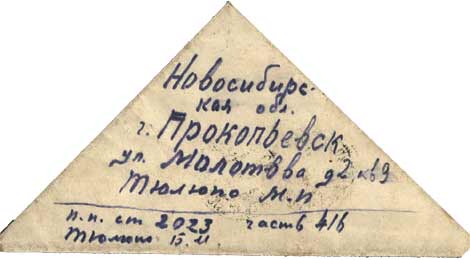 Новосибирс-
кая обл.
г. Прокопьевск
ул. Молотова д2 кв9
Тюлюпо М.П
п.п. ст 2023 часть 416
Тюлюпо